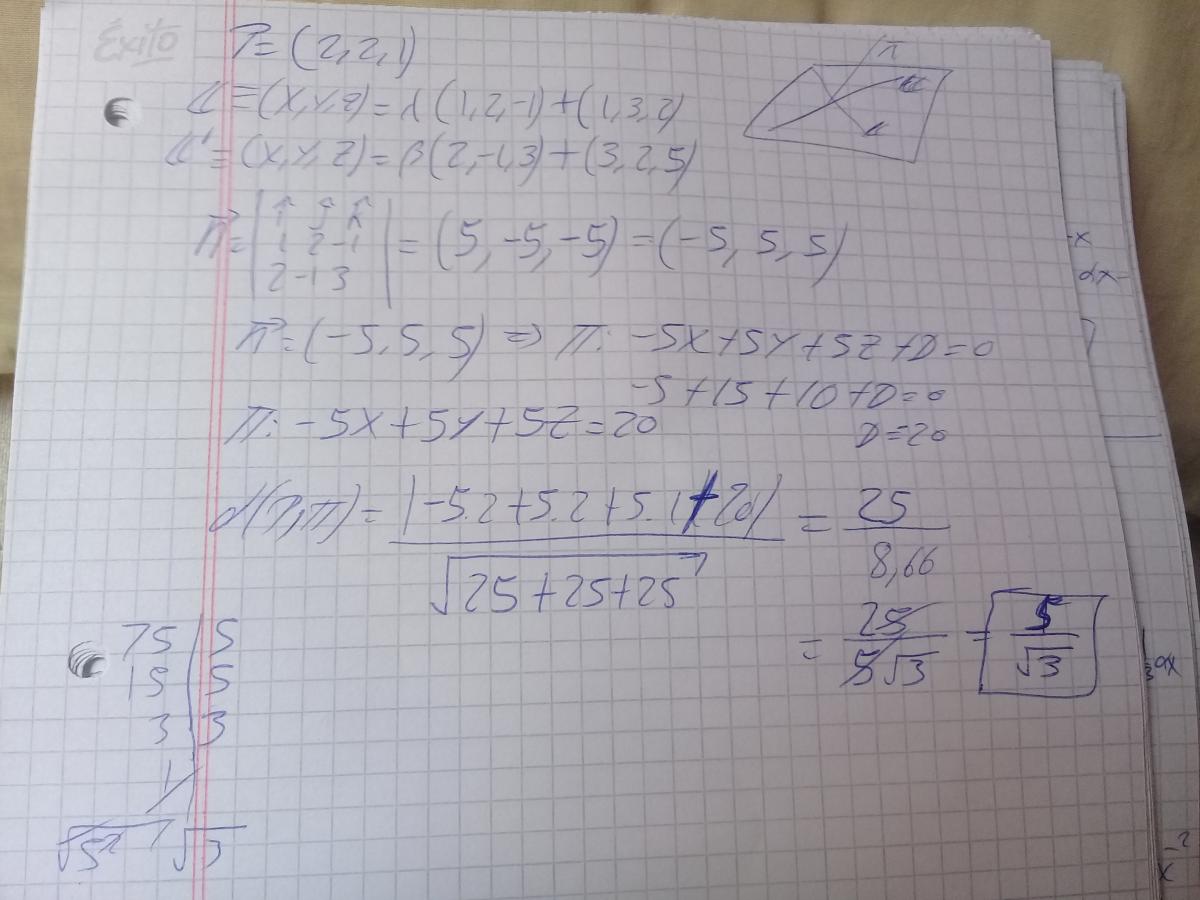 Éxito
P=(2,2,1)
π
r≡(x,y,z)=λ(1,2,-1)+(1,3,2)
r'≡(x,y,z)=β(2,-1,3)+(3,2,5)
r'
r
n⃗=|î ĵ k̂
1 2 -1
2 -1 3|=(5,-5,-5)=(-5,5,5)
n⃗=(-5,5,5)⇒π: -5x+5y+5z+D=0
-5+15+10+D=0
π: -5x+5y+5z=20
D=20
d(P,π)=|-5.2+5.2+5.1+20|/√25+25+25=25/8,66
=25/5√3=5/√3
75|5
15|5
3|3
1
√5² √3
-x
dx-
dx
x⁻²